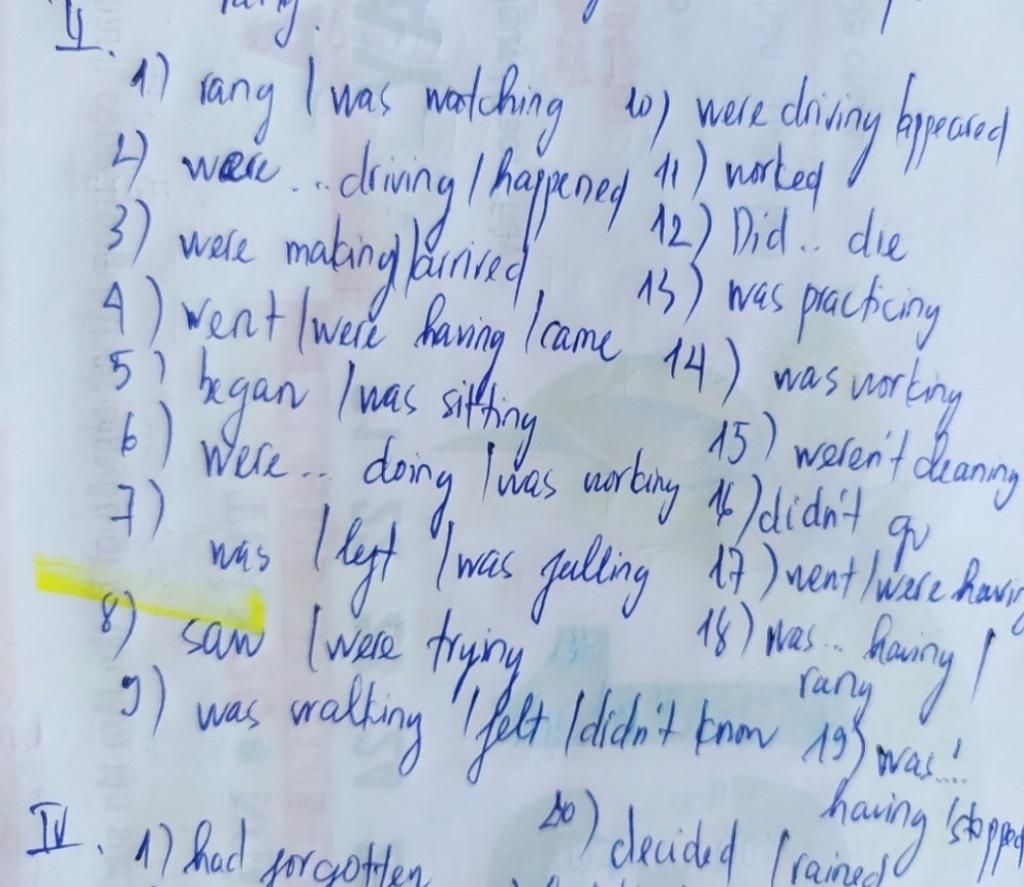 II.
1) rang / was watching
2) were... driving / happened
3) were making / arrived
4) went / were having / came
5) began / was sitting
6) were... doing / was working
7) was / left / was falling
8) saw / were trying
9) was walking / felt / didn't know
10) were driving / appeared
11) worked
12) Did.. die
13) was practicing
14) was working
15) weren't cleaning
16) didn't go
17) went / were havin
18) was... having /
rang
19) was...
having / stopped
20) decided / rained
IV. 1) had forgotten